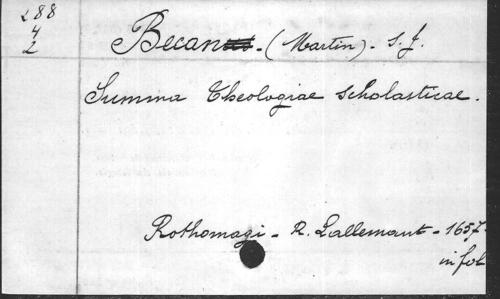 288
4
2
Becan. (Martin). S. J.
Summa Theologiae scholasticae.
Rothomagi - R. Lallemant - 1657.
in fol